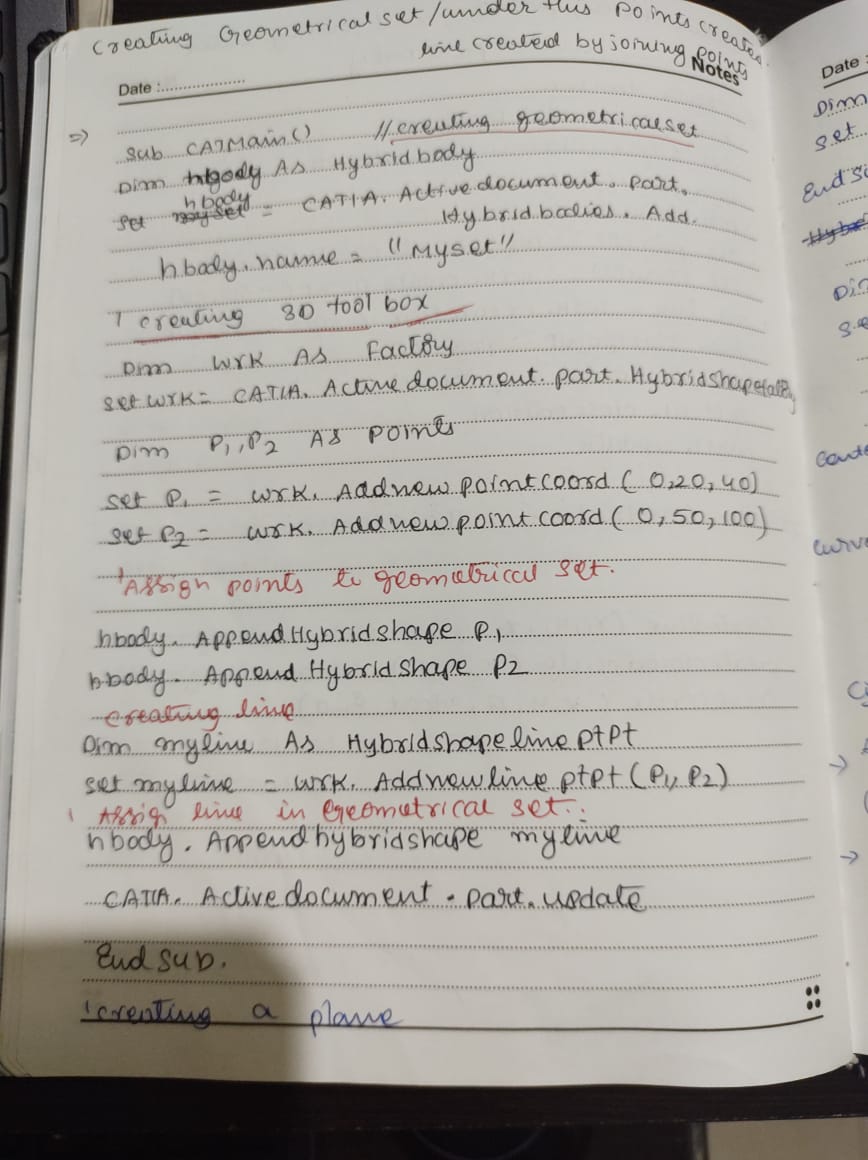 Creating Geometrical set / under this points created
line created by joining points
Notes
Date :
⇒ Sub CATMain() //creating geometricalset
Dim hbody As Hybridbody
Set hbody = CATIA. Activedocument. part.
Hybridbodies. Add.
hbody. name = "Myset"
' creating 3D tool box
Dim wrk As Factory
set wrk = CATIA. Activedocument. part. Hybridshapefactory
Dim P1, P2 As points
set P1 = wrk. Addnewpointcoord ( 0,20,40)
set P2 = wrk. Addnewpointcoord ( 0,50,100)
'Assign points to geometrical set.
hbody. AppendHybridshape P1
hbody. AppendHybridshape P2
creating line
Dim myline As Hybridshapelineptpt
set myline = wrk. Addnewlineptpt (P1, P2)
' Assign line in geometrical set.
hbody. Appendhybridshape myline
CATIA. Activedocument. part. update
End sub.
'creating a plane
Date :
Dim
set
End su
Dim
se
curve